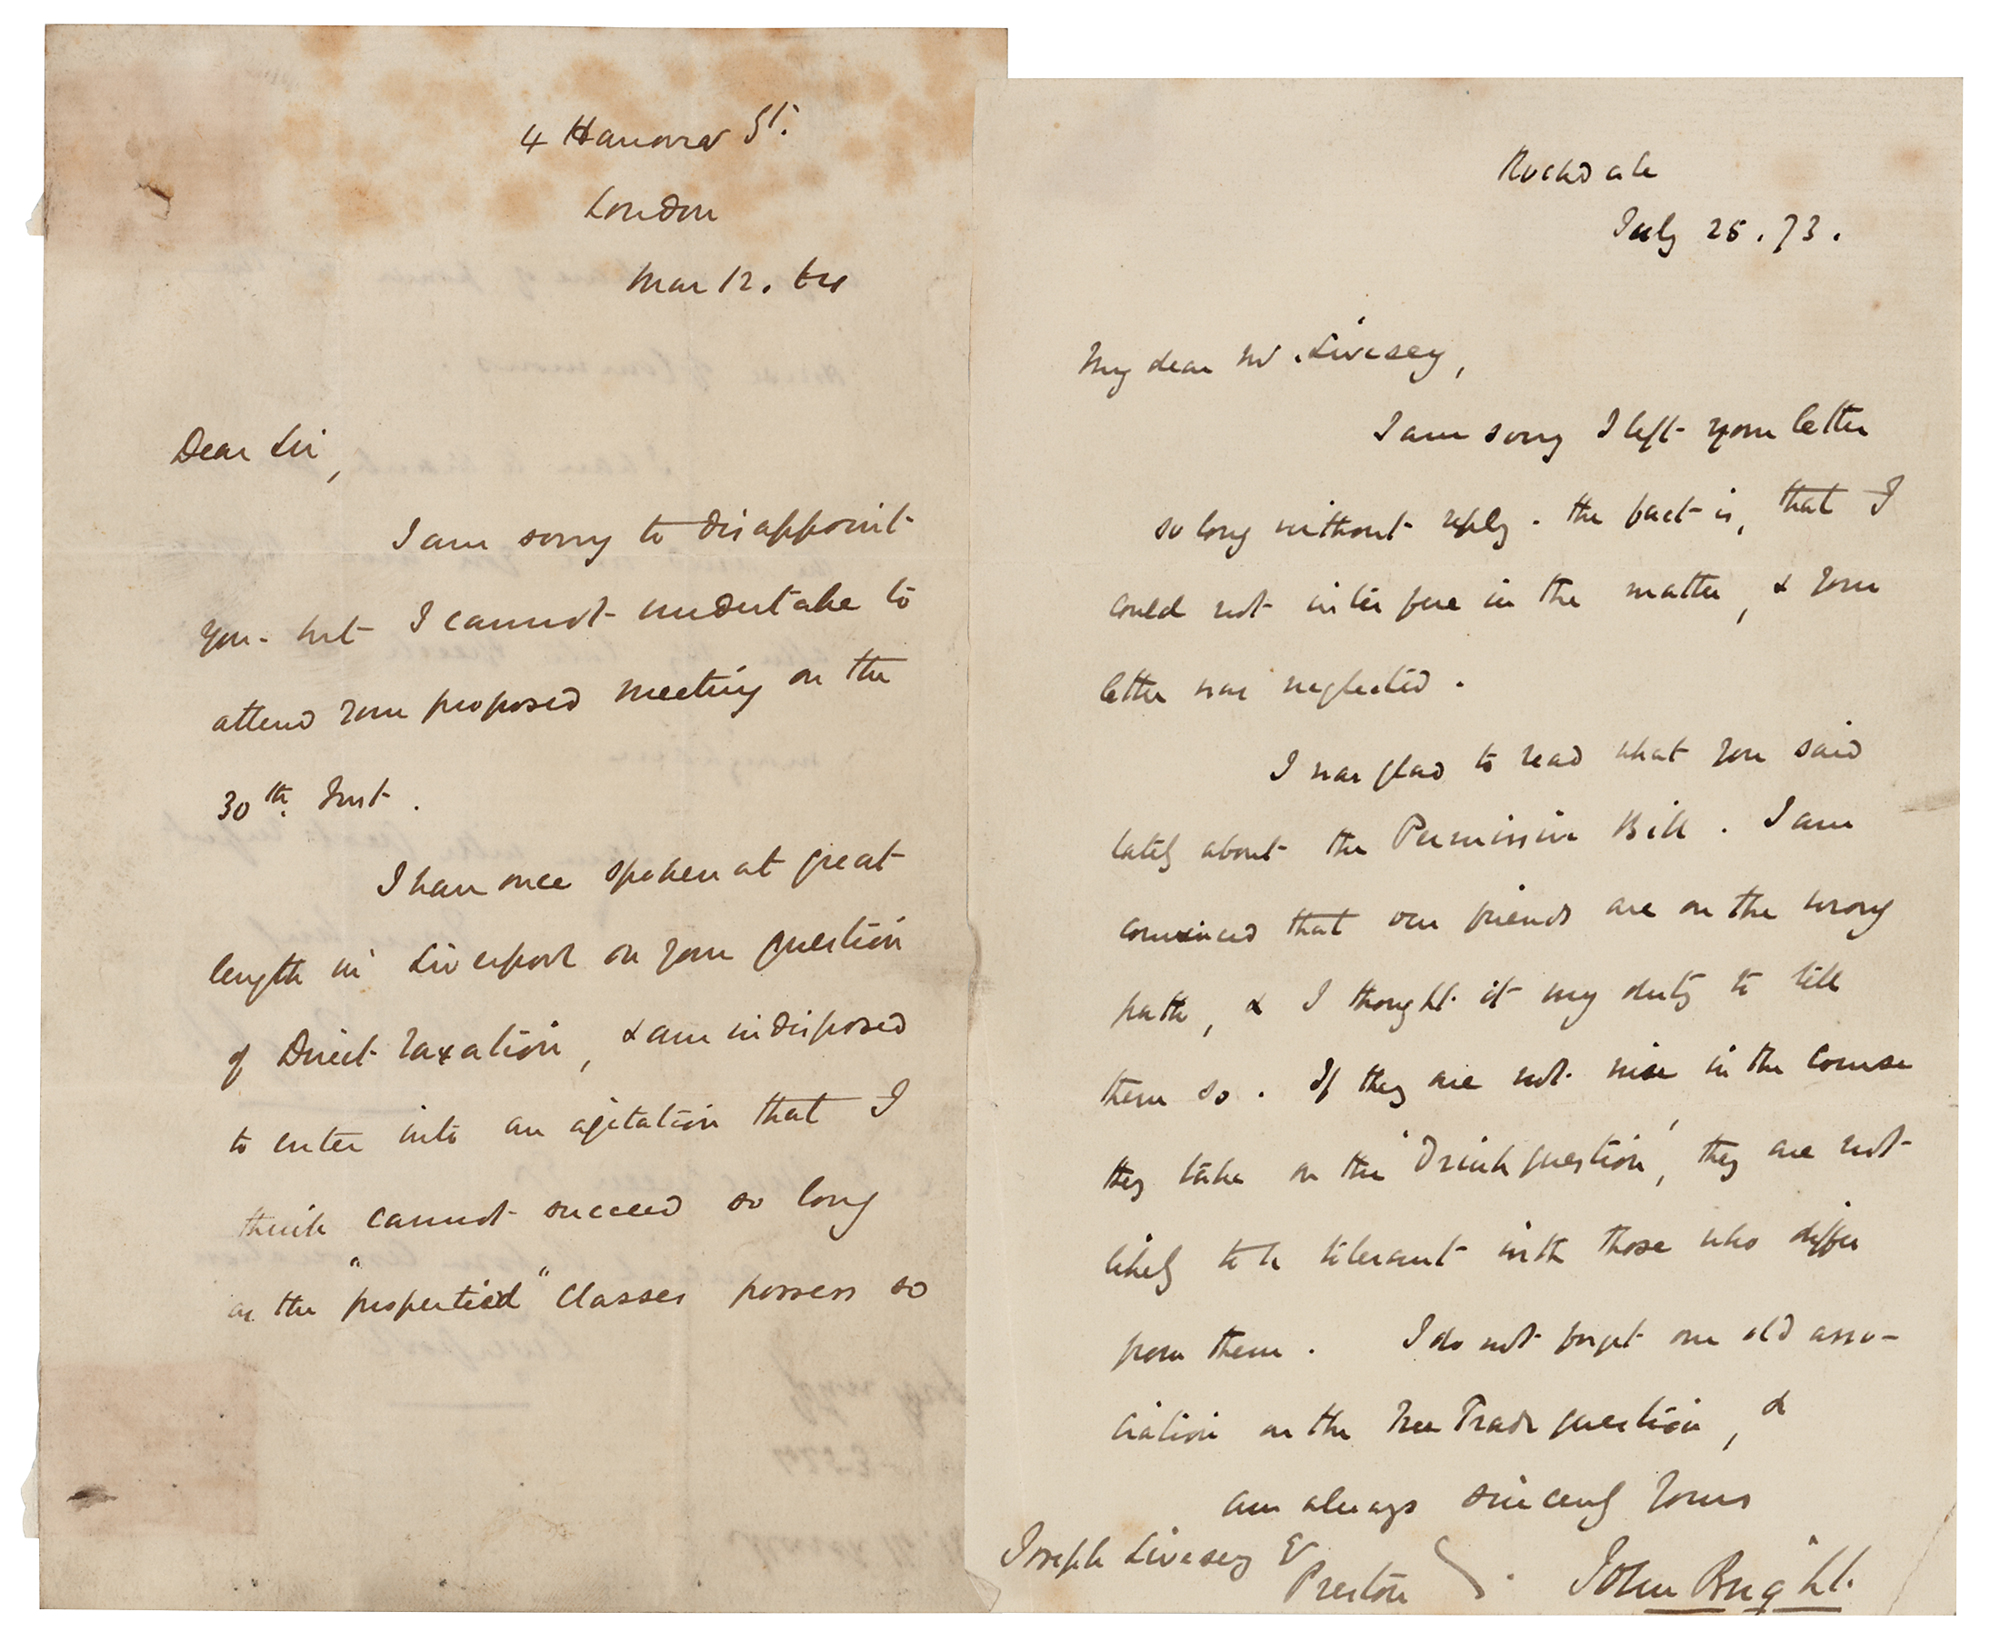 4 Hanover St.
London
Mar 12. 64
Dear Sir,
I am sorry to disappoint
you - but I cannot undertake to
attend your proposed meeting on the
30th. Inst.
I have once spoken at great
length in Liverpool on your question
of Direct Taxation, & am indisposed
to enter into an agitation that I
think cannot succeed so long
as the "propertied" classes possess so
Rochdale
July 25. 73.
My dear Mr. Livesey,
I am sorry I left your letter
so long without reply - the fact is, that I
could not interfere in the matter, & your
letter was neglected.
I was glad to read what you said
lately about the Permissive Bill. I am
convinced that our friends are on the wrong
path, & I thought it my duty to tell
them so. If they are not wise in the course
they take on the 'Drink question', they are not
likely to be tolerant with those who differ
from them. I do not forget our old asso-
ciation on the Free Trade question, &
am always sincerely yours
John Bright.
Joseph Livesey
Preston